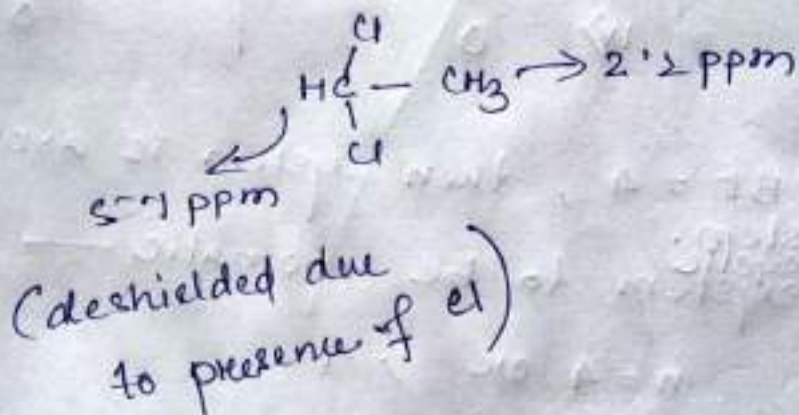 Cl
HC — CH3 → 2.2 ppm
Cl
5.9 ppm
(deshielded due
to presence of Cl)